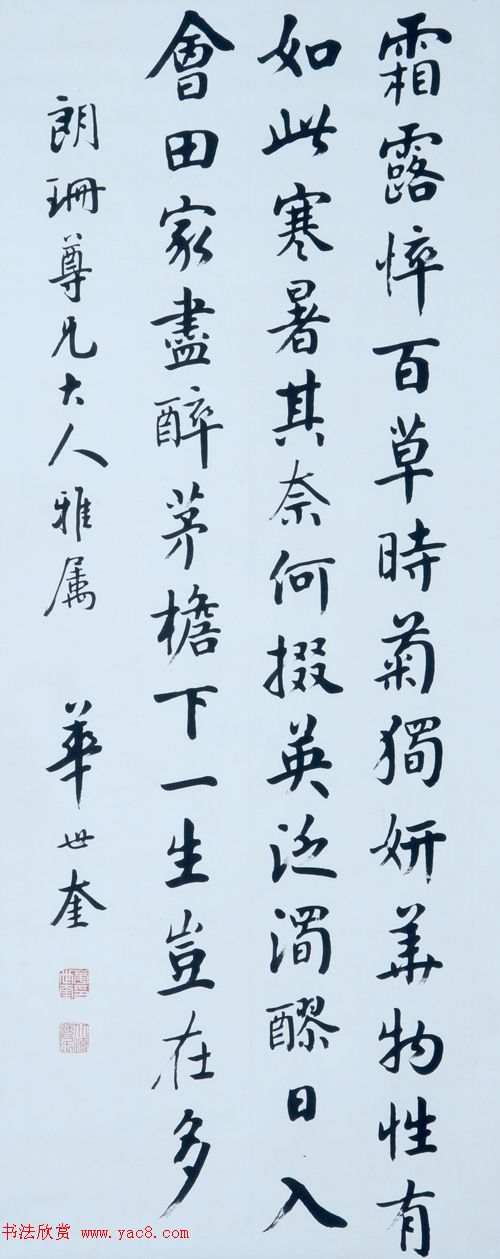 霜露悴百草時菊獨妍華物性有
如此寒暑其奈何掇英泛濁醪日入
會田家盡醉茅檐下一生豈在多
朗珊尊兄大人雅属 華世奎
书法欣赏 www.yac8.com